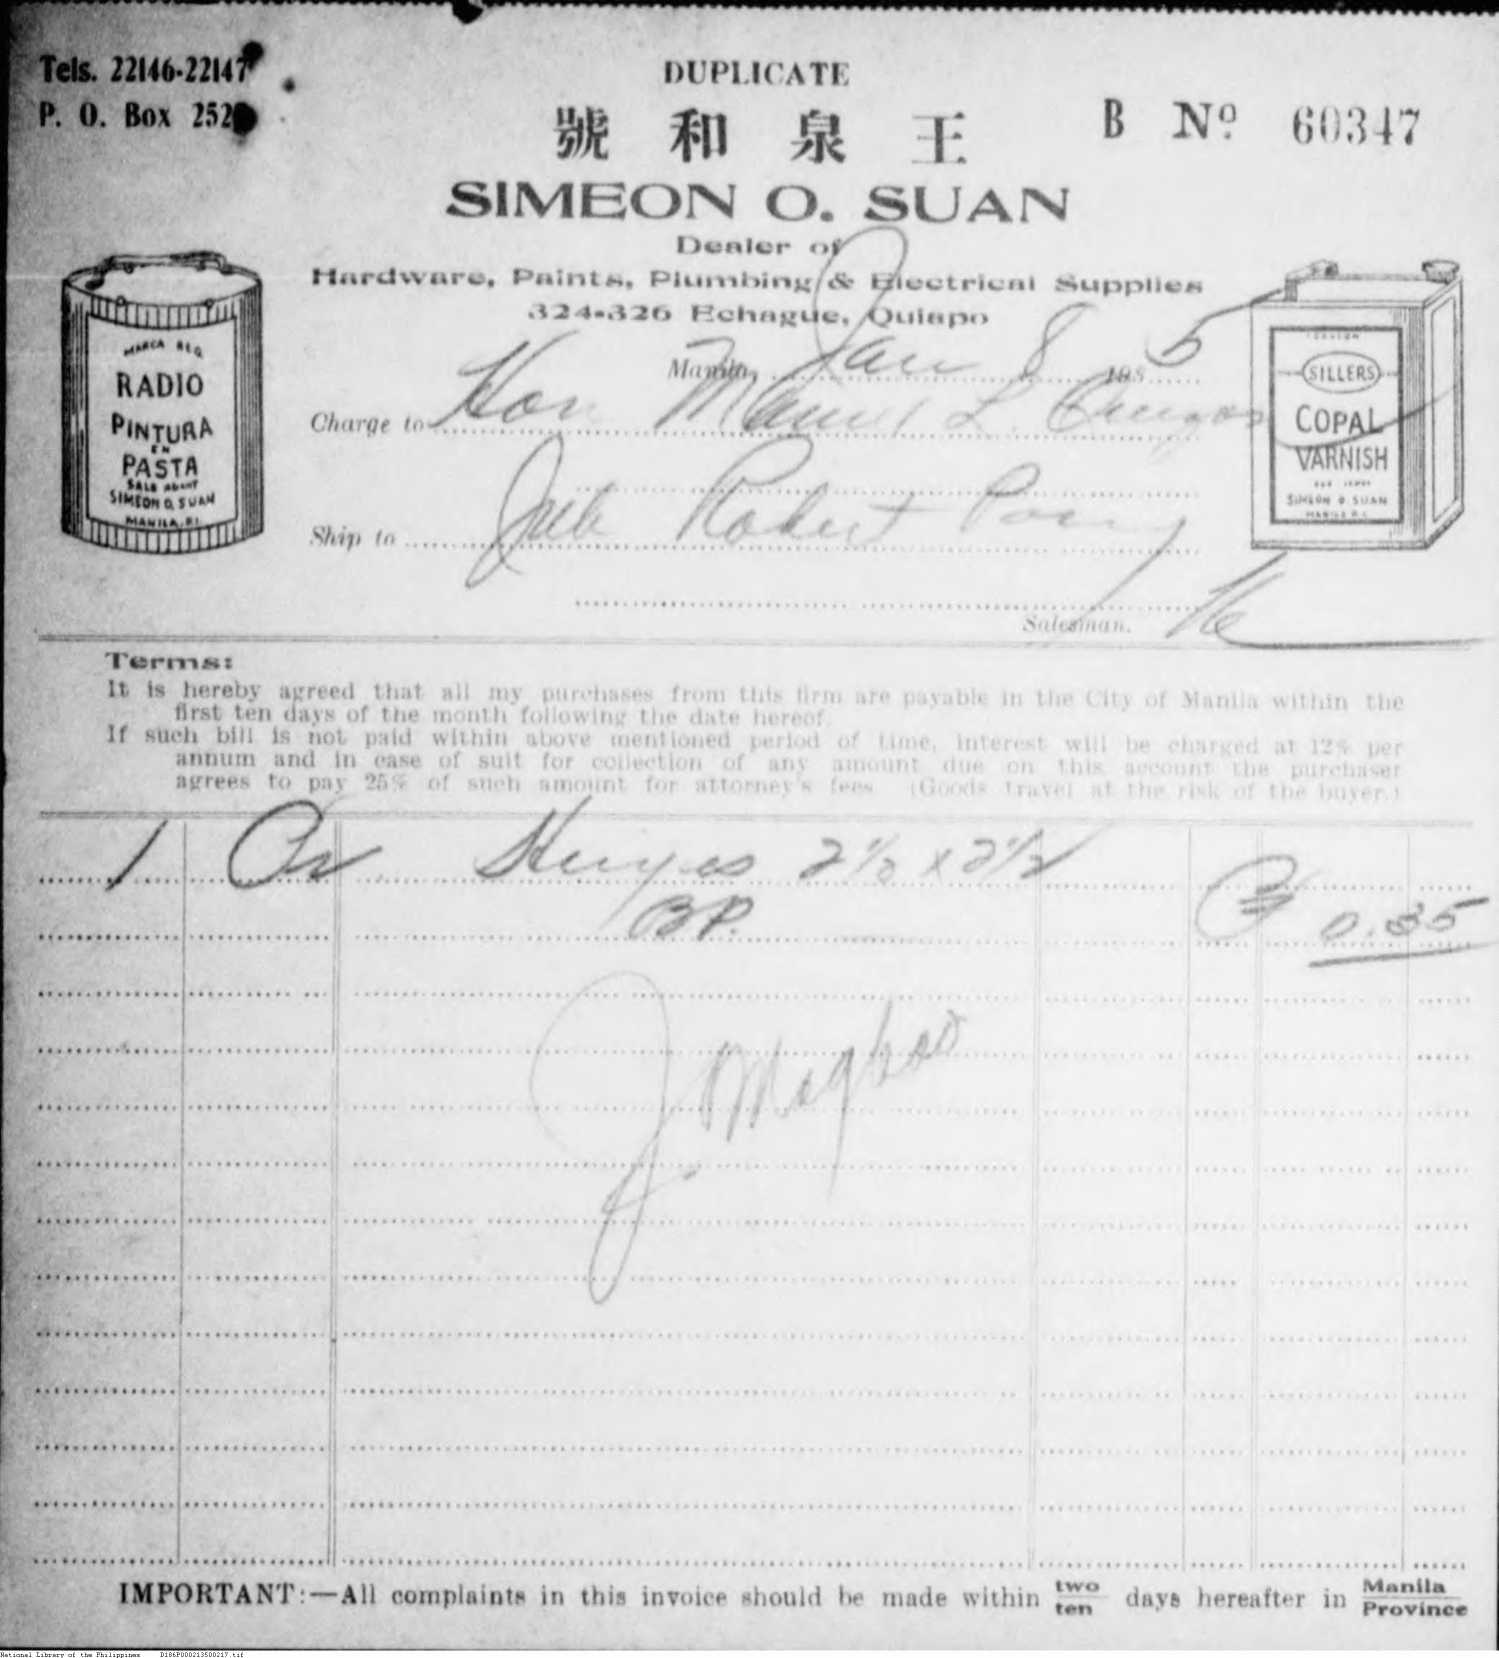 Tels. 22146-22147
P. O. Box 252
DUPLICATE
B Nº 60347
號 和 泉 王
SIMEON O. SUAN
Dealer of
Hardware, Paints, Plumbing & Electrical Supplies
324-326 Echague, Quiapo
Manila, Jan 8 193 5
Charge to Hon Manuel L.
Ship to Robert
Salesman.
MARCA REG.
RADIO
PINTURA
EN
PASTA
SALE AGENT
SIMEON O. SUAN
MANILA, P.I.
SILLERS
COPAL
VARNISH
SIMEON O. SUAN
MANILA P.I.
Terms:
It is hereby agreed that all my purchases from this firm are payable in the City of Manila within the
first ten days of the month following the date hereof.
If such bill is not paid within above mentioned period of time, interest will be charged at 12% per
annum and in case of suit for collection of any amount due on this account the purchaser
agrees to pay 25% of such amount for attorney's fees (Goods travel at the risk of the buyer.)
1 Pr 2½ x 2½
BP. ₱ 0.35
IMPORTANT:—All complaints in this invoice should be made within two ten days hereafter in Manila Province
National Library of the Philippines D186P000213500217.tif